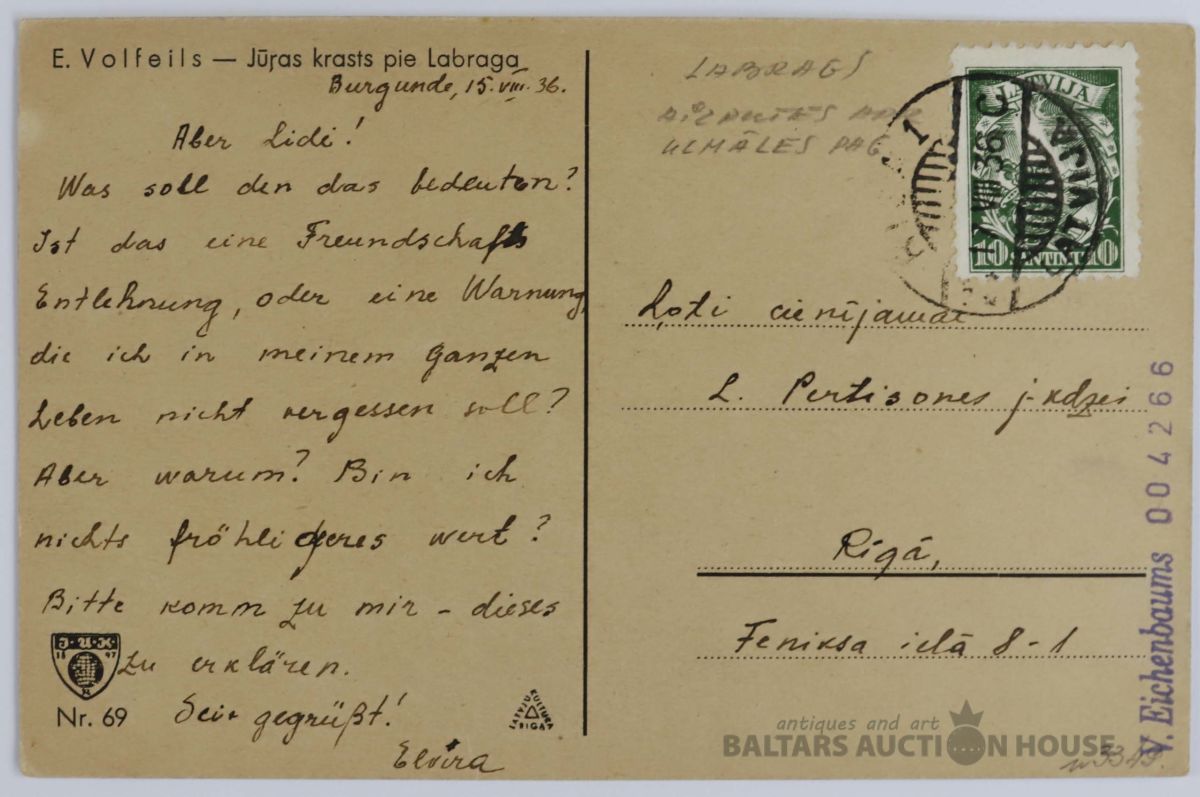 E. Volfeils — Jūŗas krasts pie Labraga
Burgunde, 15. VIII. 36.
Aber Lidi!
Was soll den das bedeuten?
Ist das eine Freundschafts
Entlehnung, oder eine Warnung,
die ich in meinem ganzen
Leben nicht vergessen soll?
Aber warum? Bin ich
nichts fröhligeres wert?
Bitte komm zu mir – dieses
zu erklären.
Sei gegrüßt!
Elvira
J·U·K
18 97
R
Nr. 69
LATVJU KULTURA
RIGA
LABRAGS
AIZPUTES APR
ULMĀLES PAG
LATVIJA
10 SANTIMU 10
LATVIJA
VIII 36
C
1
Ļoti cienījamai
L. Pertisones j-kdzei
Rīgā,
Feniksa ielā 8-1
V. Eichenbaums 004266
antiques and art
BALTARS AUCTION HOUSE